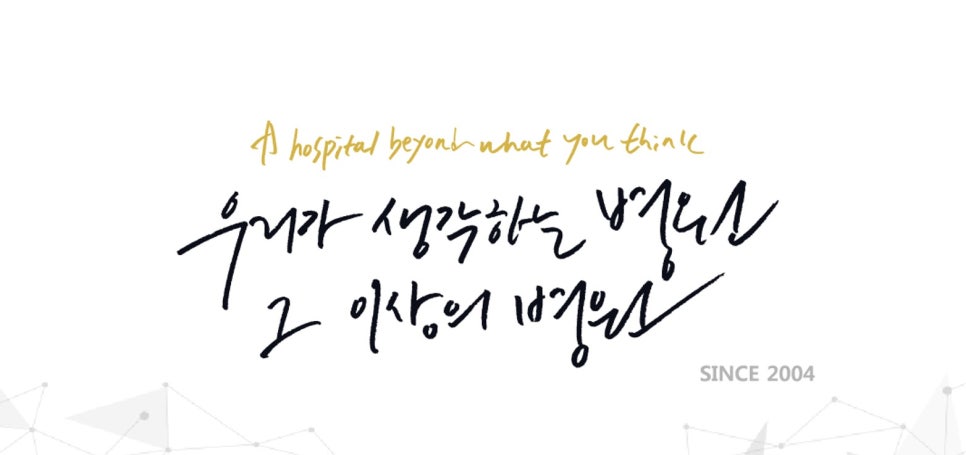 A hospital beyond what you think
우리가 생각하는 병원
그 이상의 병원
SINCE 2004